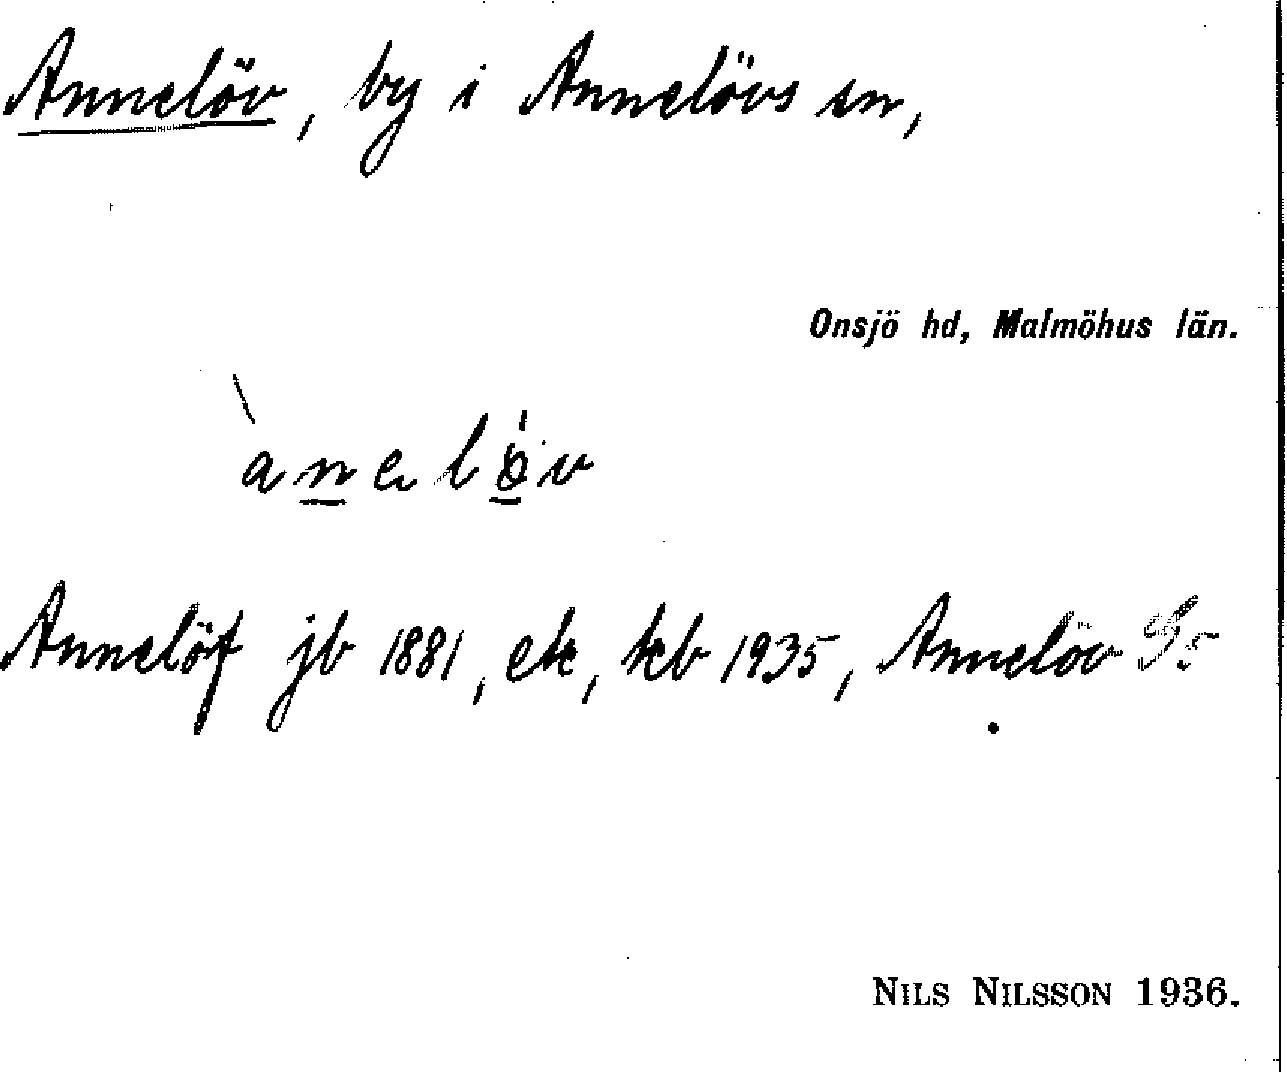 Annelöv, by i Annelövs sn,
Onsjö hd, Malmöhus län.
Annelöf jb 1881, etc, kb 1935, Annelöv
NILS NILSSON 1936.